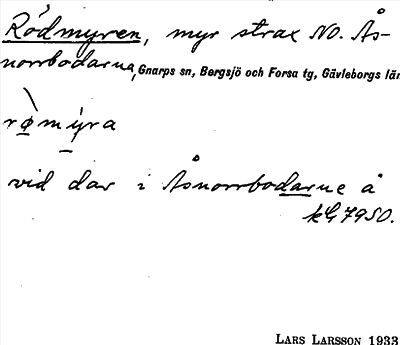 Rödmyren, myr strax NO. Ås-
norrbodarna, Gnarps sn, Bergsjö och Forsa tg, Gävleborgs län
rø̀mýra
vid dar i Åsnorrbodarne å
kG7950.
LARS LARSSON 1933